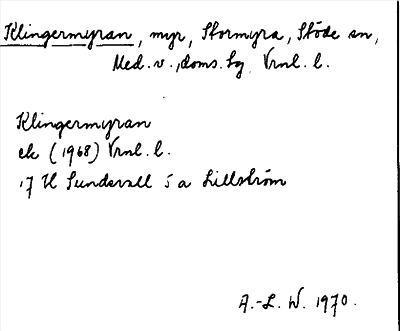 Klingermyran, myr, Stormyra, Stöde sn,
Med. v., doms. lg. Vrnl. l.
Klingermyran
ek (1968) Vrnl. l.
17 H Sundsvall 5 a Lillström
A.-L. W. 1970.